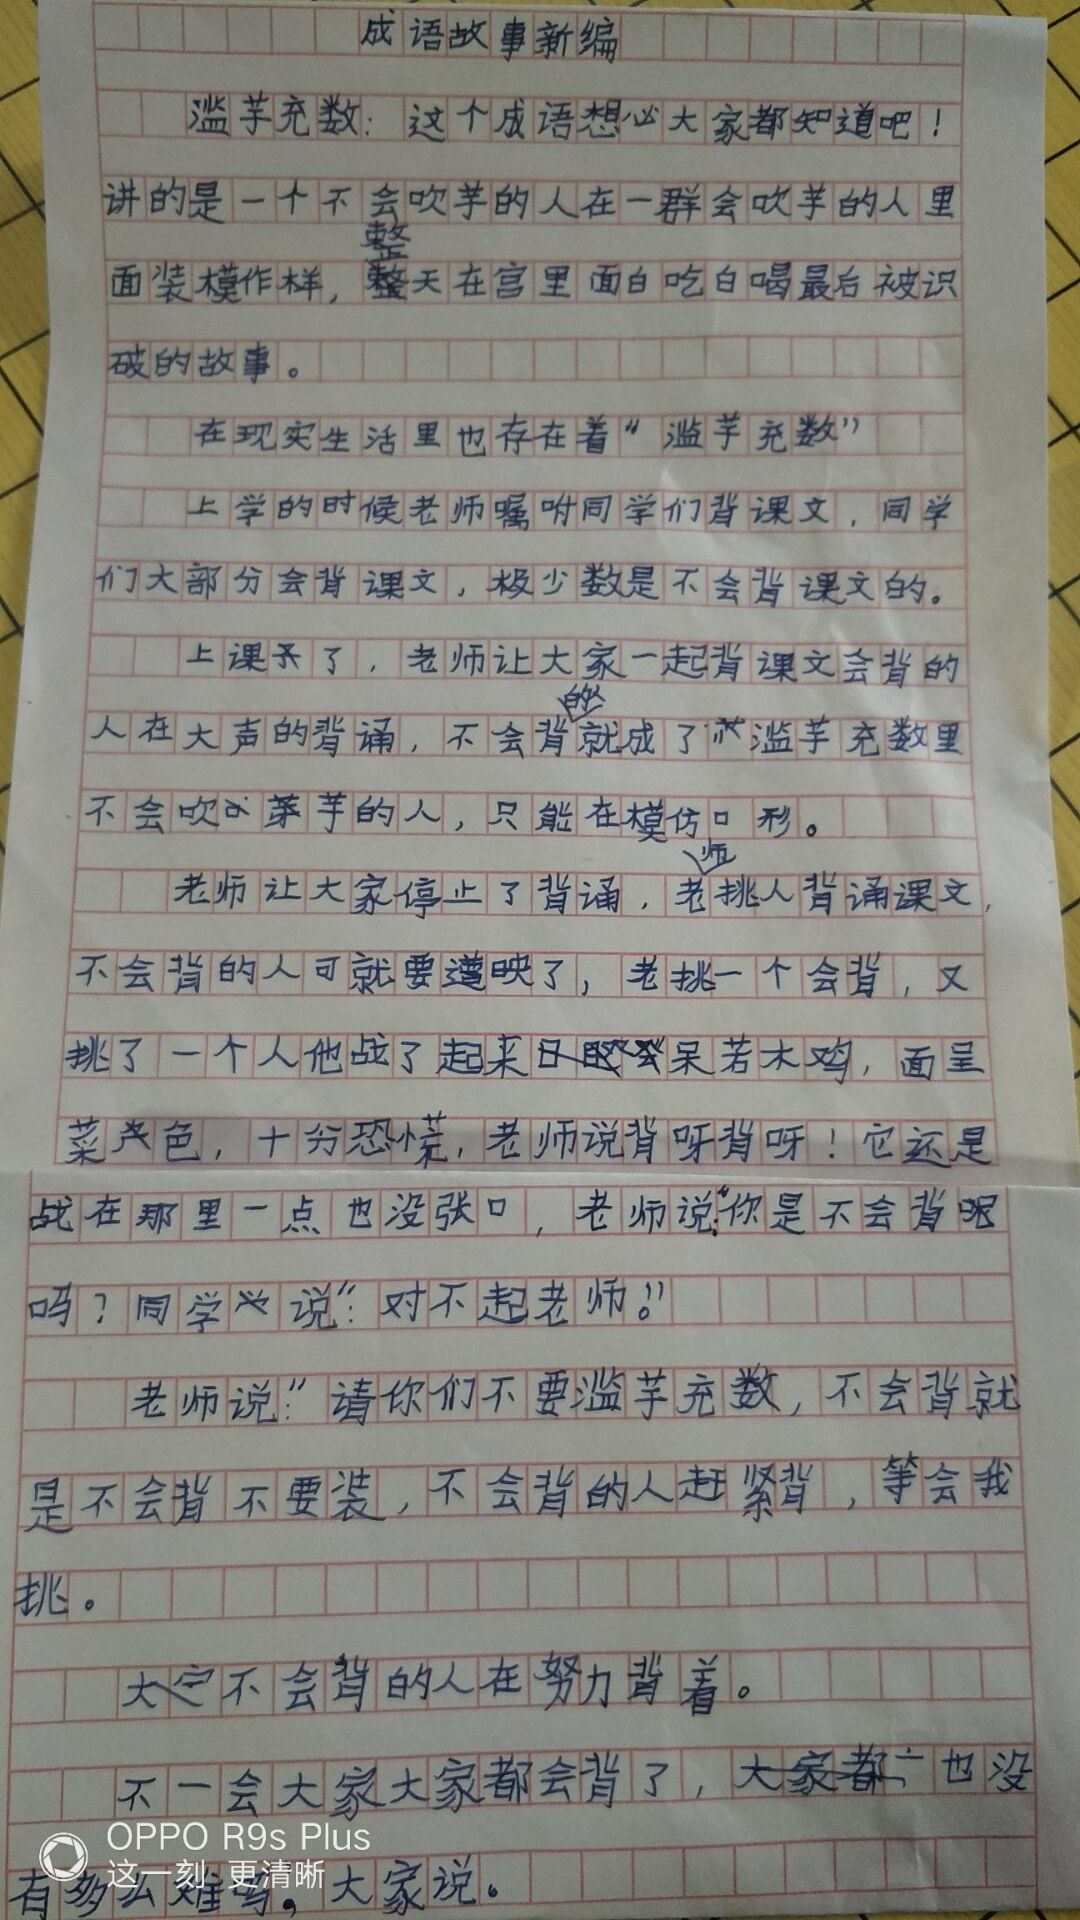 成语故事新编
滥芋充数：这个成语想必大家都知道吧！
讲的是一个不会吹芋的人在一群会吹芋的人里
面装模作样，整天在宫里面白吃白喝最后被识
破的故事。
在现实生活里也存在着“滥芋充数”
上学的时候老师嘱咐同学们背课文，同学
们大部分会背课文，极少数是不会背课文的。
上课了，老师让大家一起背课文会背的
人在大声的背诵，不会背的就成了滥芋充数里
不会吹芋的人，只能在模仿口形。
老师让大家停止了背诵，老师挑人背诵课文，
不会背的人可就要遭映了，老挑一个会背，又
挑了一个人他战了起来呆若木鸡，面呈
菜色，十分恐慌，老师说背呀背呀！它还是
战在那里一点也没张口，老师说：“你是不会背呢
吗？同学说“：对不起老师。”
老师说：“请你们不要滥芋充数，不会背就
是不会背不要装，不会背的人赶紧背，等会我
挑。
不会背的人在努力背着。
不一会大家大家都会背了，也没
有多么难吗。大家说。
OPPO R9s Plus
这一刻 更清晰